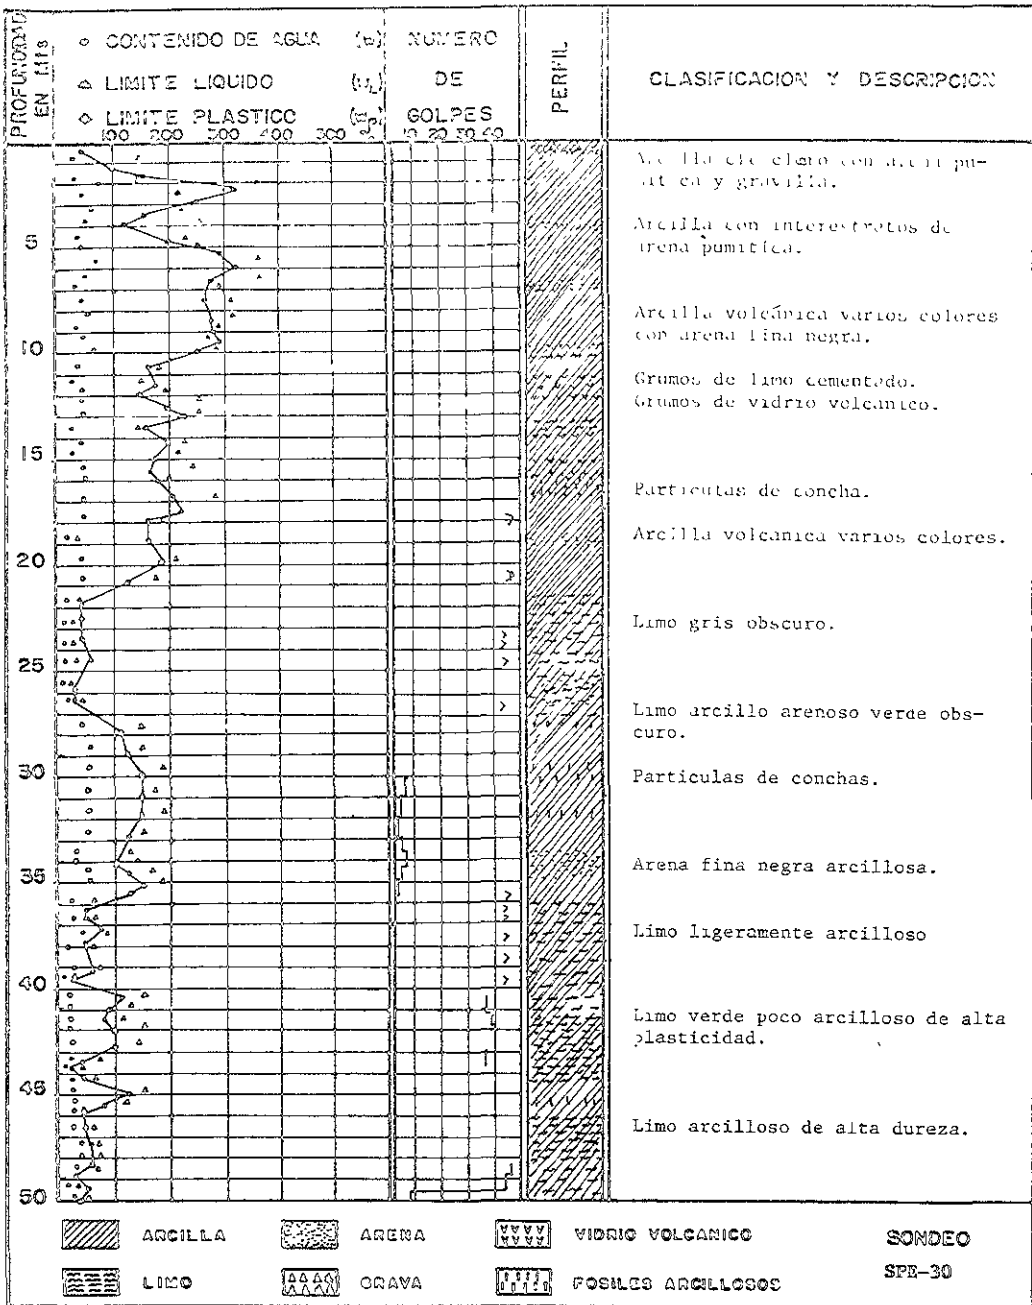 PROFUNDIDAD
EN Mts
○ CONTENIDO DE AGUA (w)
△ LIMITE LIQUIDO
◇ LIMITE PLASTICO
100 200 300
NUMERO
DE
GOLPES
10 20 30 40
PERFIL
CLASIFICACION Y DESCRIPCION
con
y gravilla.
5
Arcilla con interestratos de
arena pumítica.
Arcilla volcánica varios colores
con arena fina negra.
10
Grumos de limo cementado.
Grumos de vidrio volcanico.
15
Particulas de concha.
Arcilla volcanica varios colores.
20
Limo gris obscuro.
25
Limo arcillo arenoso verde obs-
curo.
30
Particulas de conchas.
Arena fina negra arcillosa.
35
Limo ligeramente arcilloso
40
Limo verde poco arcilloso de alta
plasticidad.
45
Limo arcilloso de alta dureza.
50
ARCILLA
ARENA
VIDRIO VOLCANICO
LIMO
GRAVA
FOSILES ARCILLOSOS
SONDEO
SPE-30